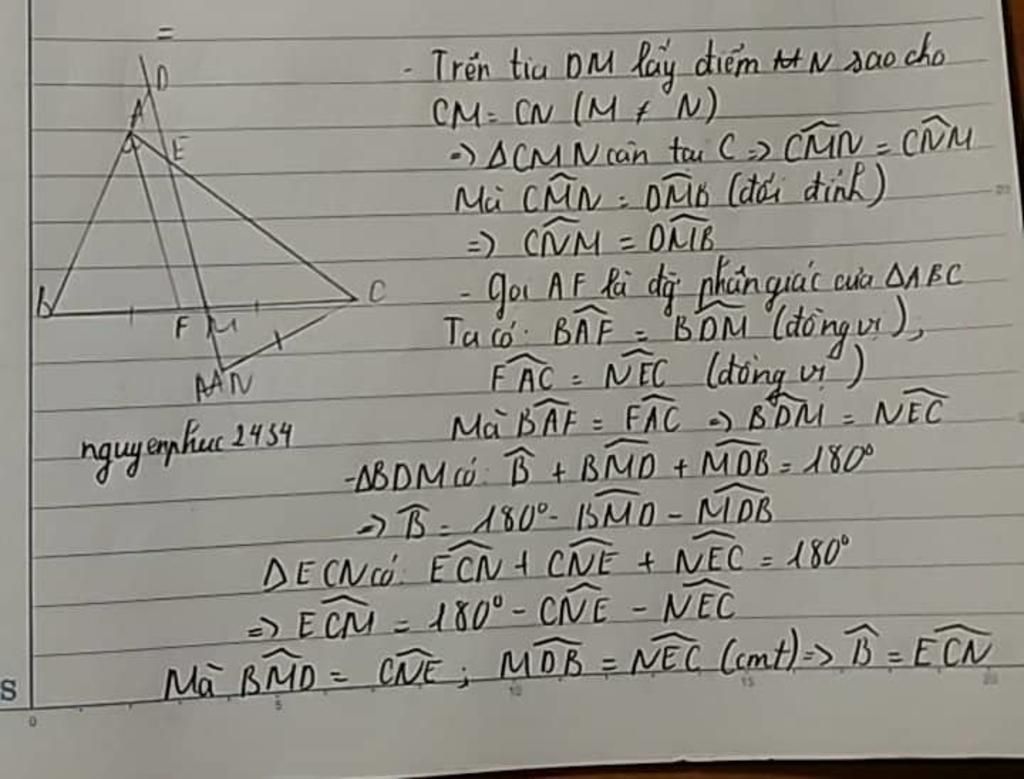 =
D
A
E
B
C
F M
N
nguyenphuc2454
- Trên tia DM lấy điểm N sao cho
CM = CN (M ≠ N)
=> ΔCMN cân tại C => \widehat{CMN} = \widehat{CNM}
Mà \widehat{CMN} = \widehat{DMB} (đối đỉnh)
=> \widehat{CNM} = \widehat{DMB}
- Gọi AF là đg phân giác của ΔABC
Ta có: \widehat{BAF} = \widehat{BDM} (đồng vị),
\widehat{FAC} = \widehat{NEC} (đồng vị)
Mà \widehat{BAF} = \widehat{FAC} => \widehat{BDM} = \widehat{NEC}
- ΔBDM có: \widehat{B} + \widehat{BMD} + \widehat{MDB} = 180°
=> \widehat{B} = 180° - \widehat{BMD} - \widehat{MDB}
ΔECN có: \widehat{ECN} + \widehat{CNE} + \widehat{NEC} = 180°
=> \widehat{ECM} = 180° - \widehat{CNE} - \widehat{NEC}
Mà \widehat{BMD} = \widehat{CNE} ; \widehat{MDB} = \widehat{NEC} (cmt) => \widehat{B} = \widehat{ECN}
S
0 5 10 15 20